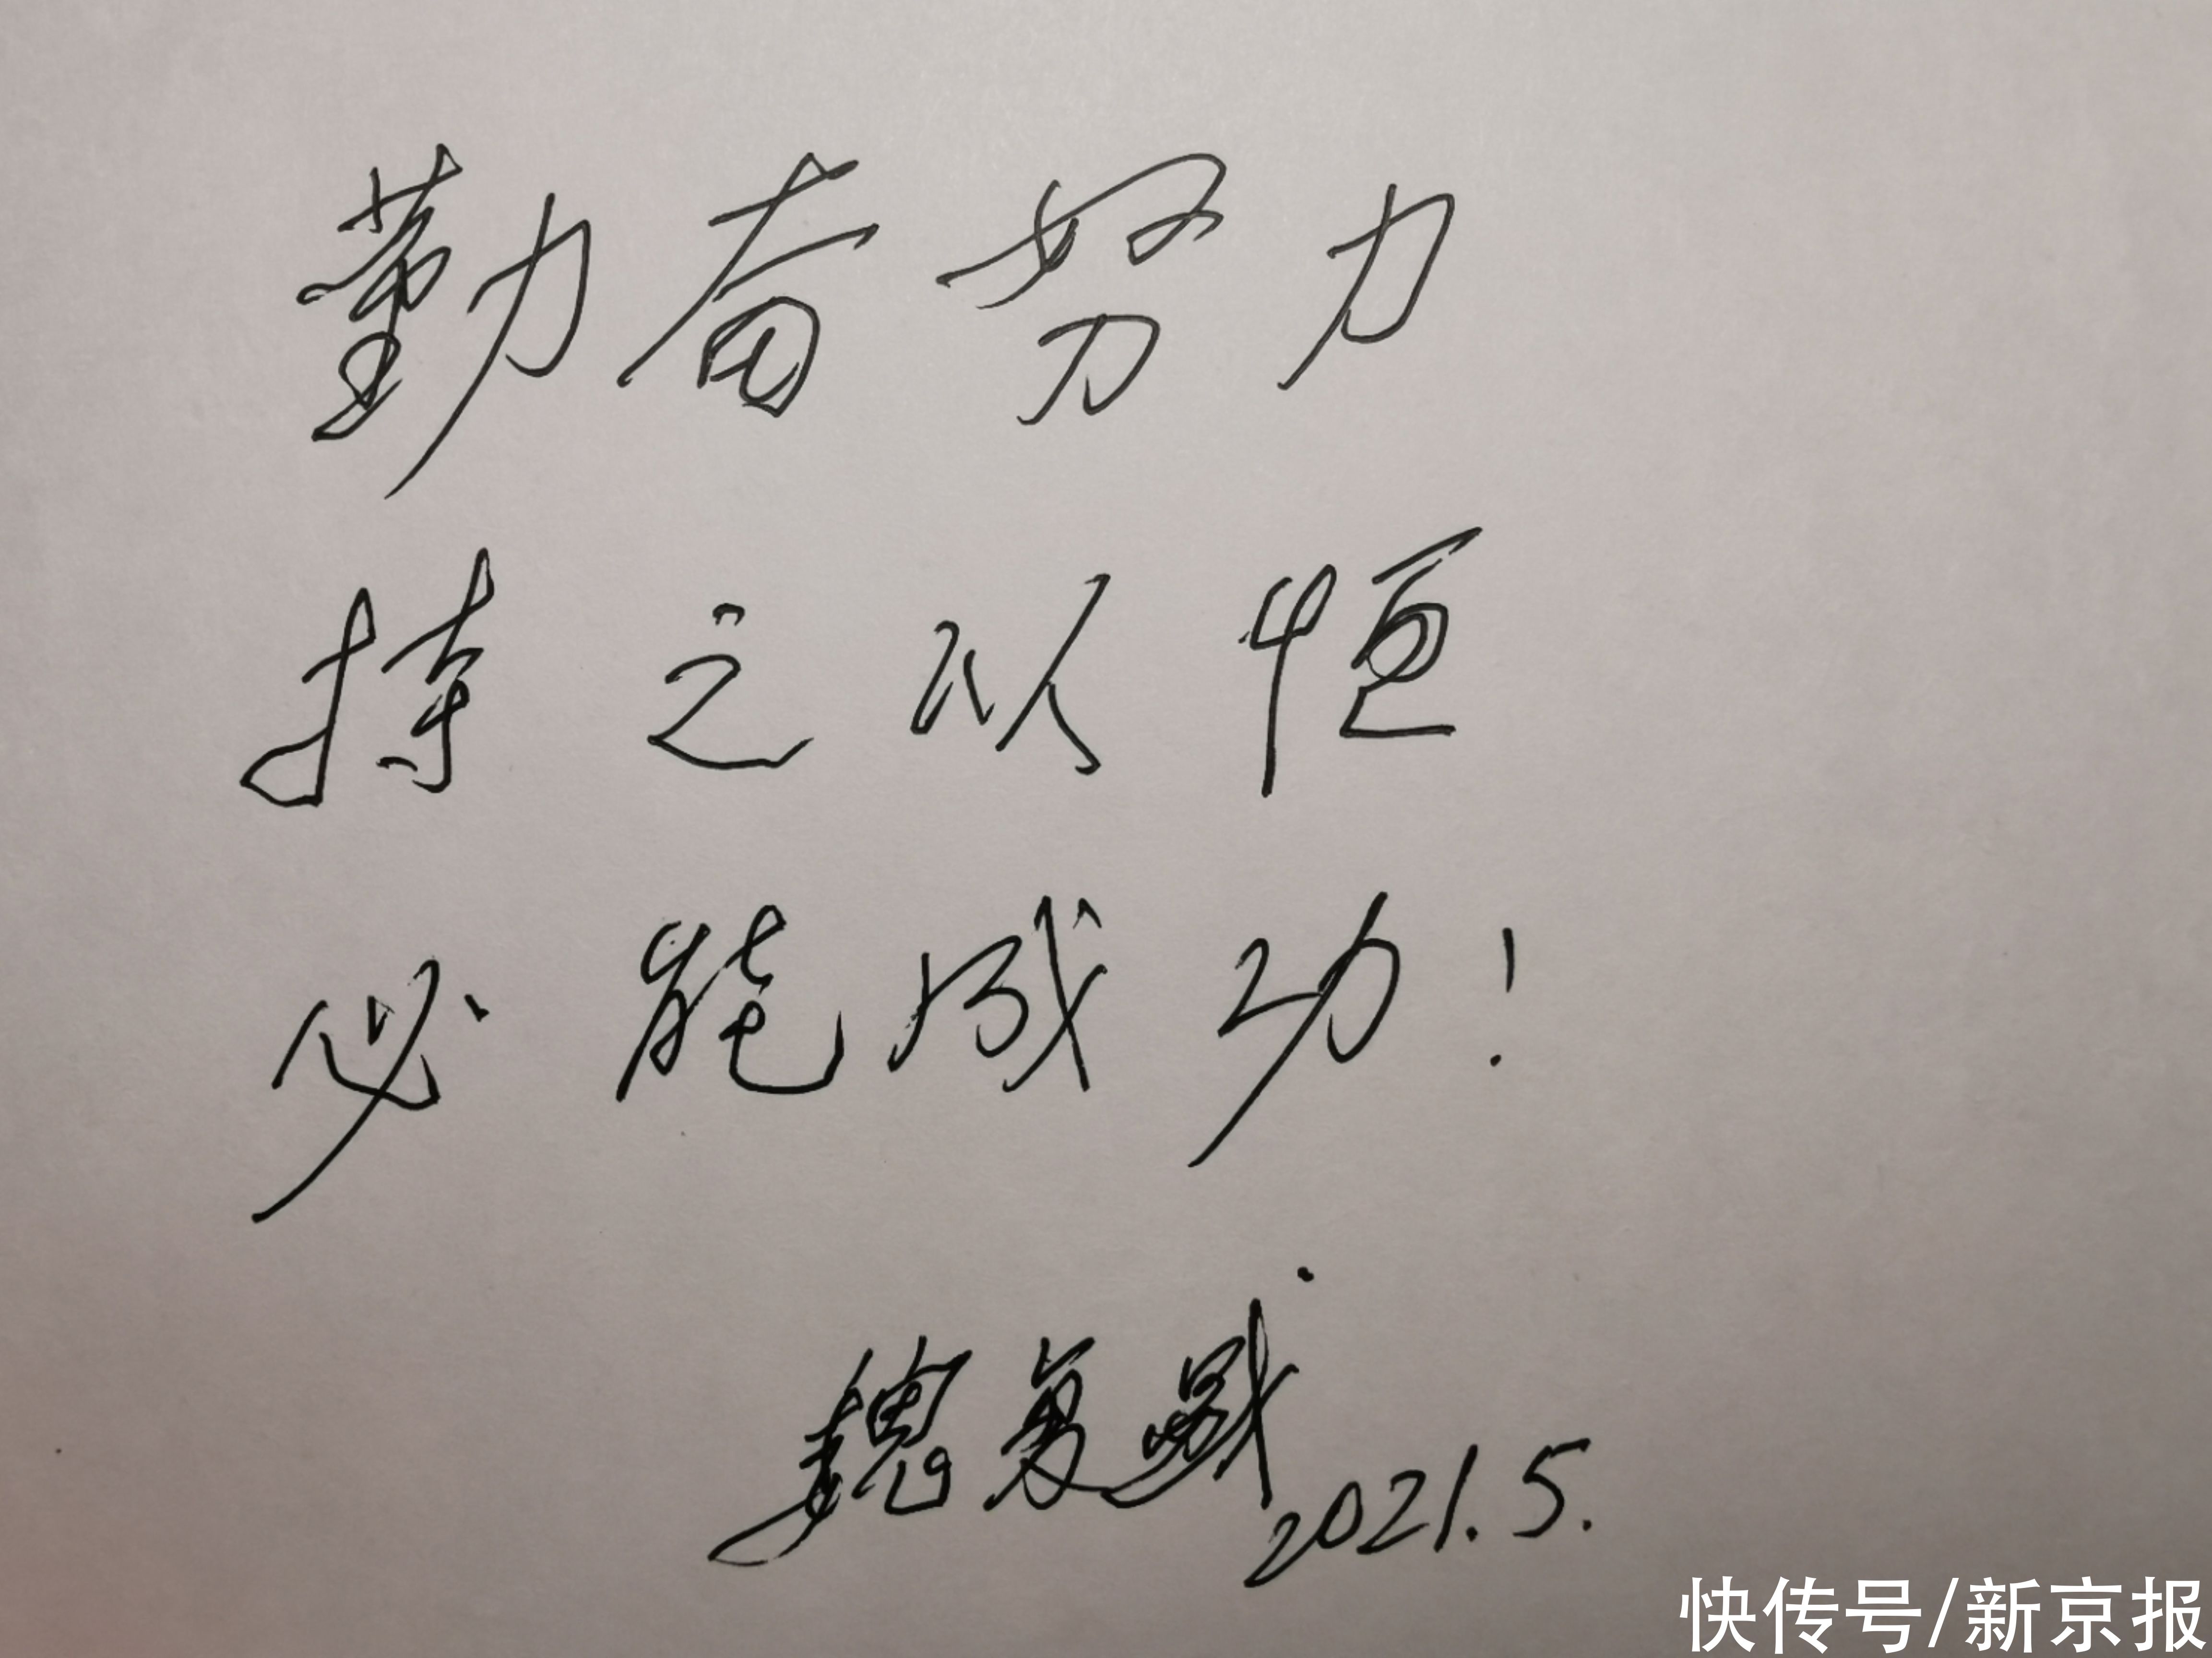 勤奋努力
持之以恒
必能成功!
魏复盛
2021.5.
快传号/新京报